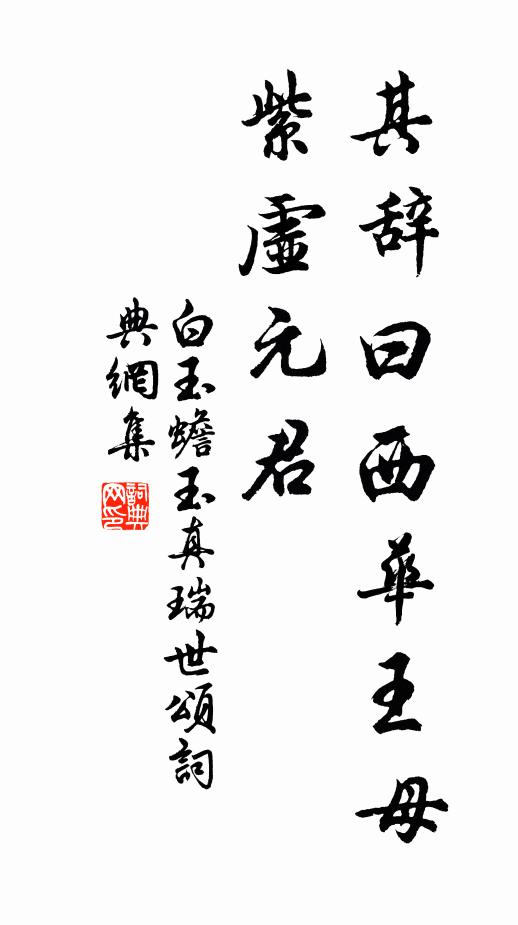 其辞曰西華王母
紫虛元君
白玉蟾玉真瑞世頌詞
典網集
詞典
网印